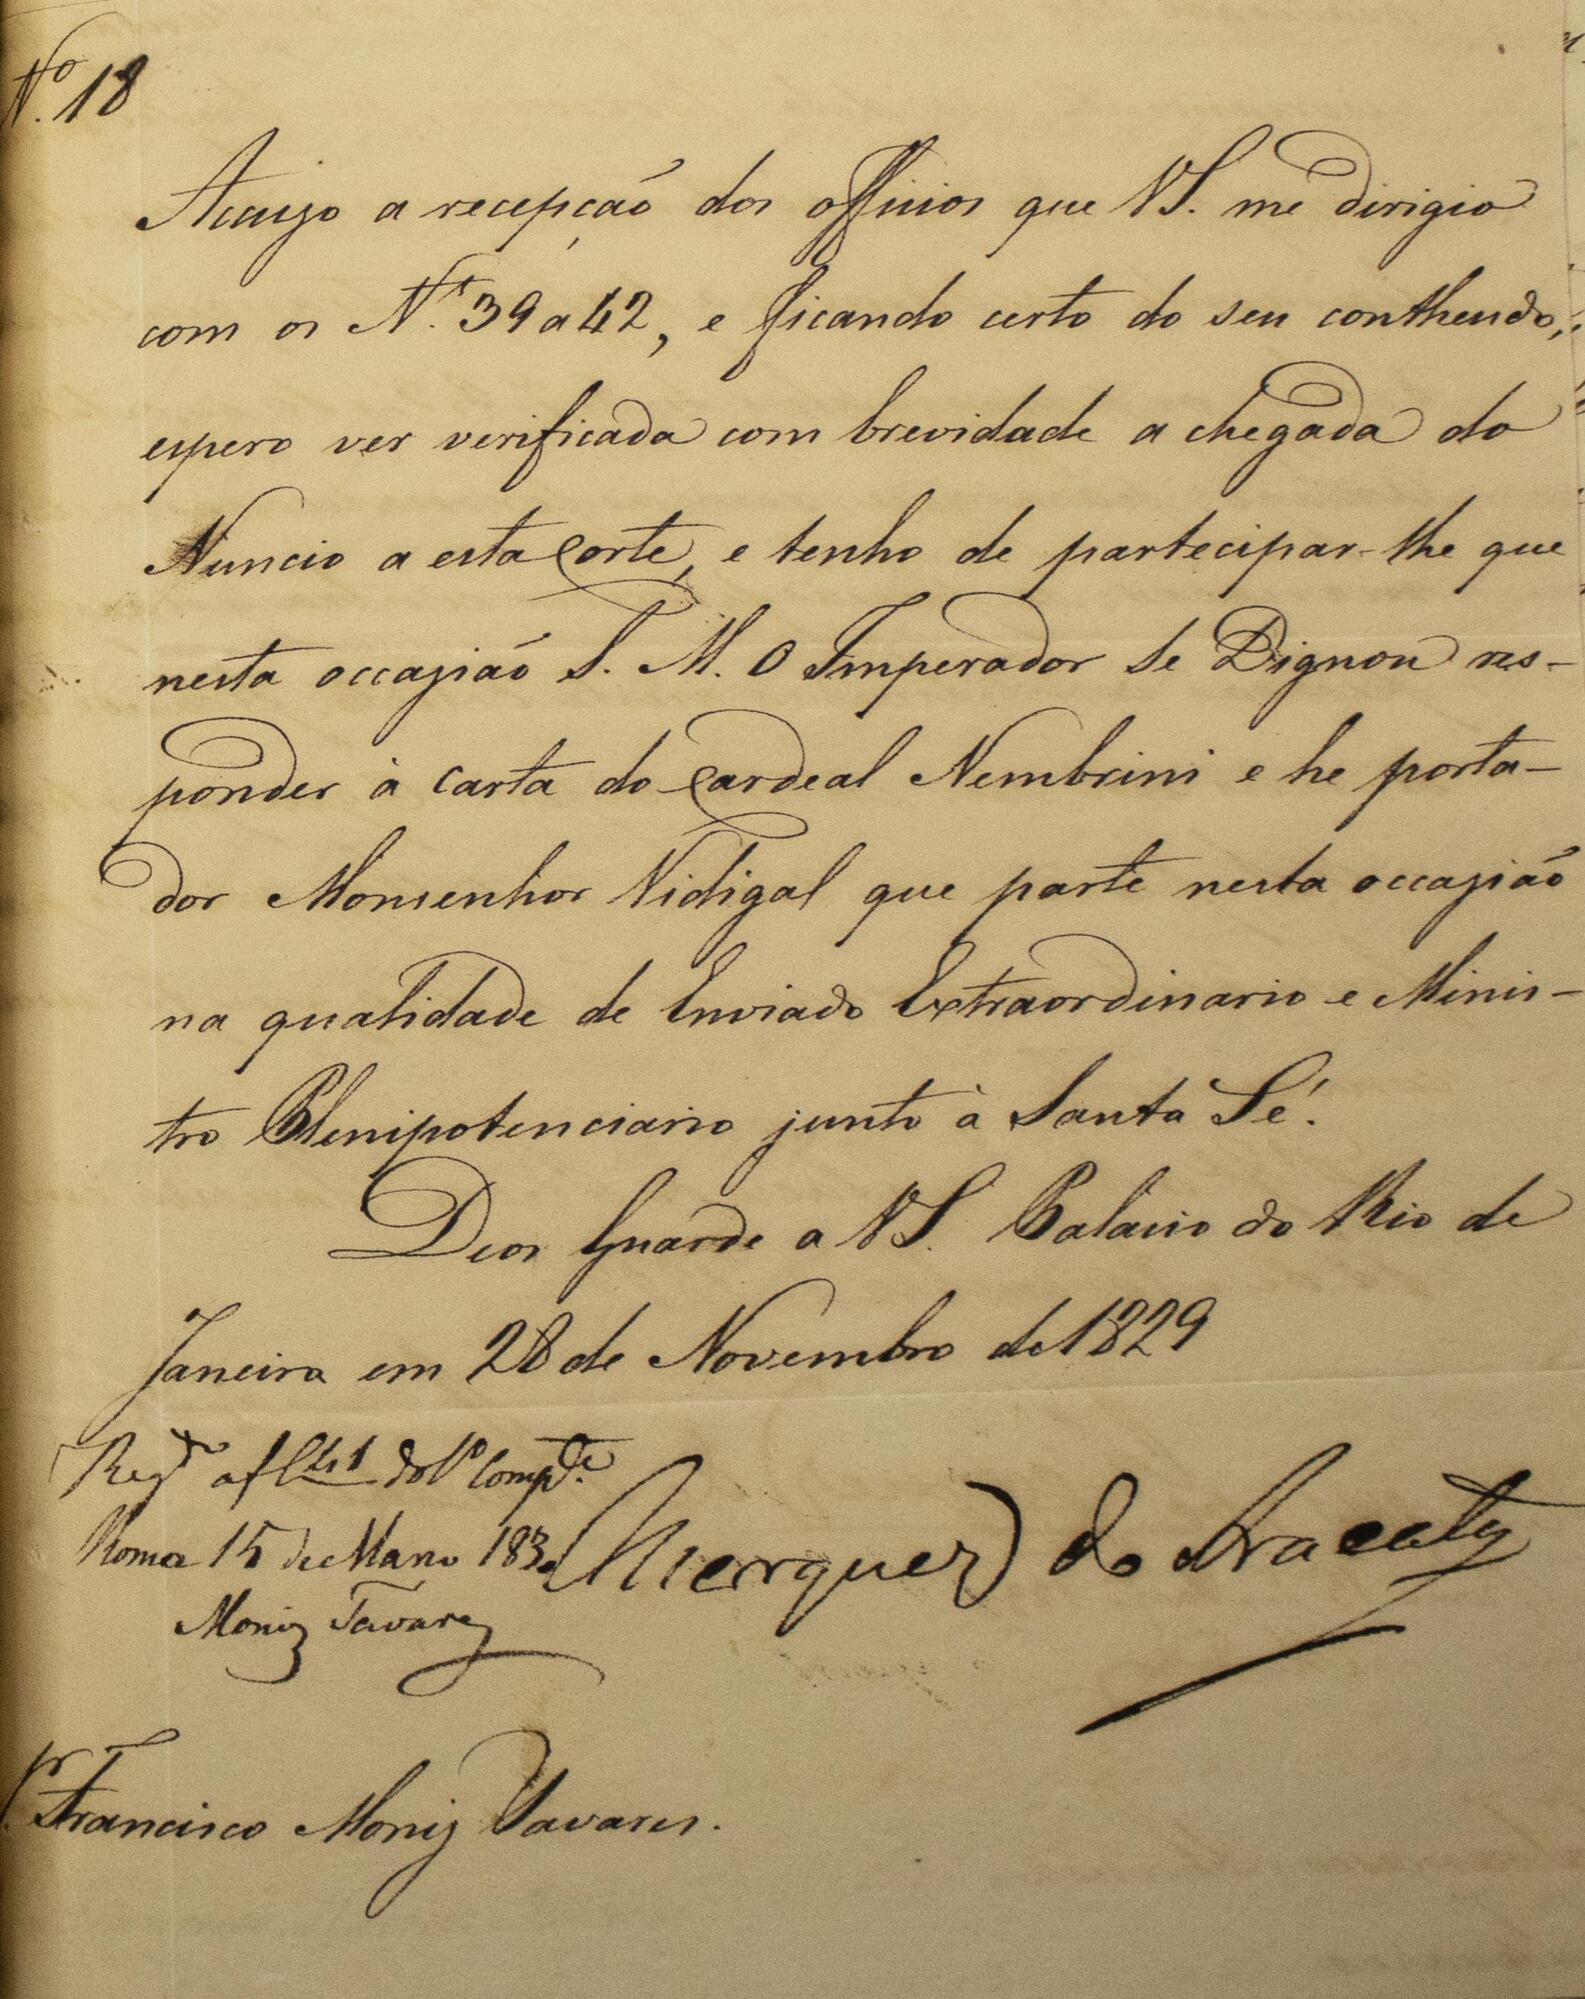 Nº 18
Accuso a recepção dos officios que VS. me dirigio
com os Nos 39 a 42, e ficando certo do seu contheudo,
espero ver verificada com brevidade a chegada do
Nuncio a esta Corte, e tenho de partecipar-lhe que
nesta occazião S. M. O Imperador Se Dignou res-
ponder à carta do Cardeal Nembrini e he porta-
dor Monsenhor Vidigal que parte nesta occazião
na qualidade de Enviado Extraordinario e Minis-
tro Plenipotenciario junto à Santa Sé.
Deos Guarde a VS. Palacio do Rio de
Janeiro em 28 de Novembro de 1829
Regdo a fl do Lo Compte
Roma 15 de Março 1830
Moniz Tavares
Marquez do Aracaty
Sr Francisco Moniz Tavares.